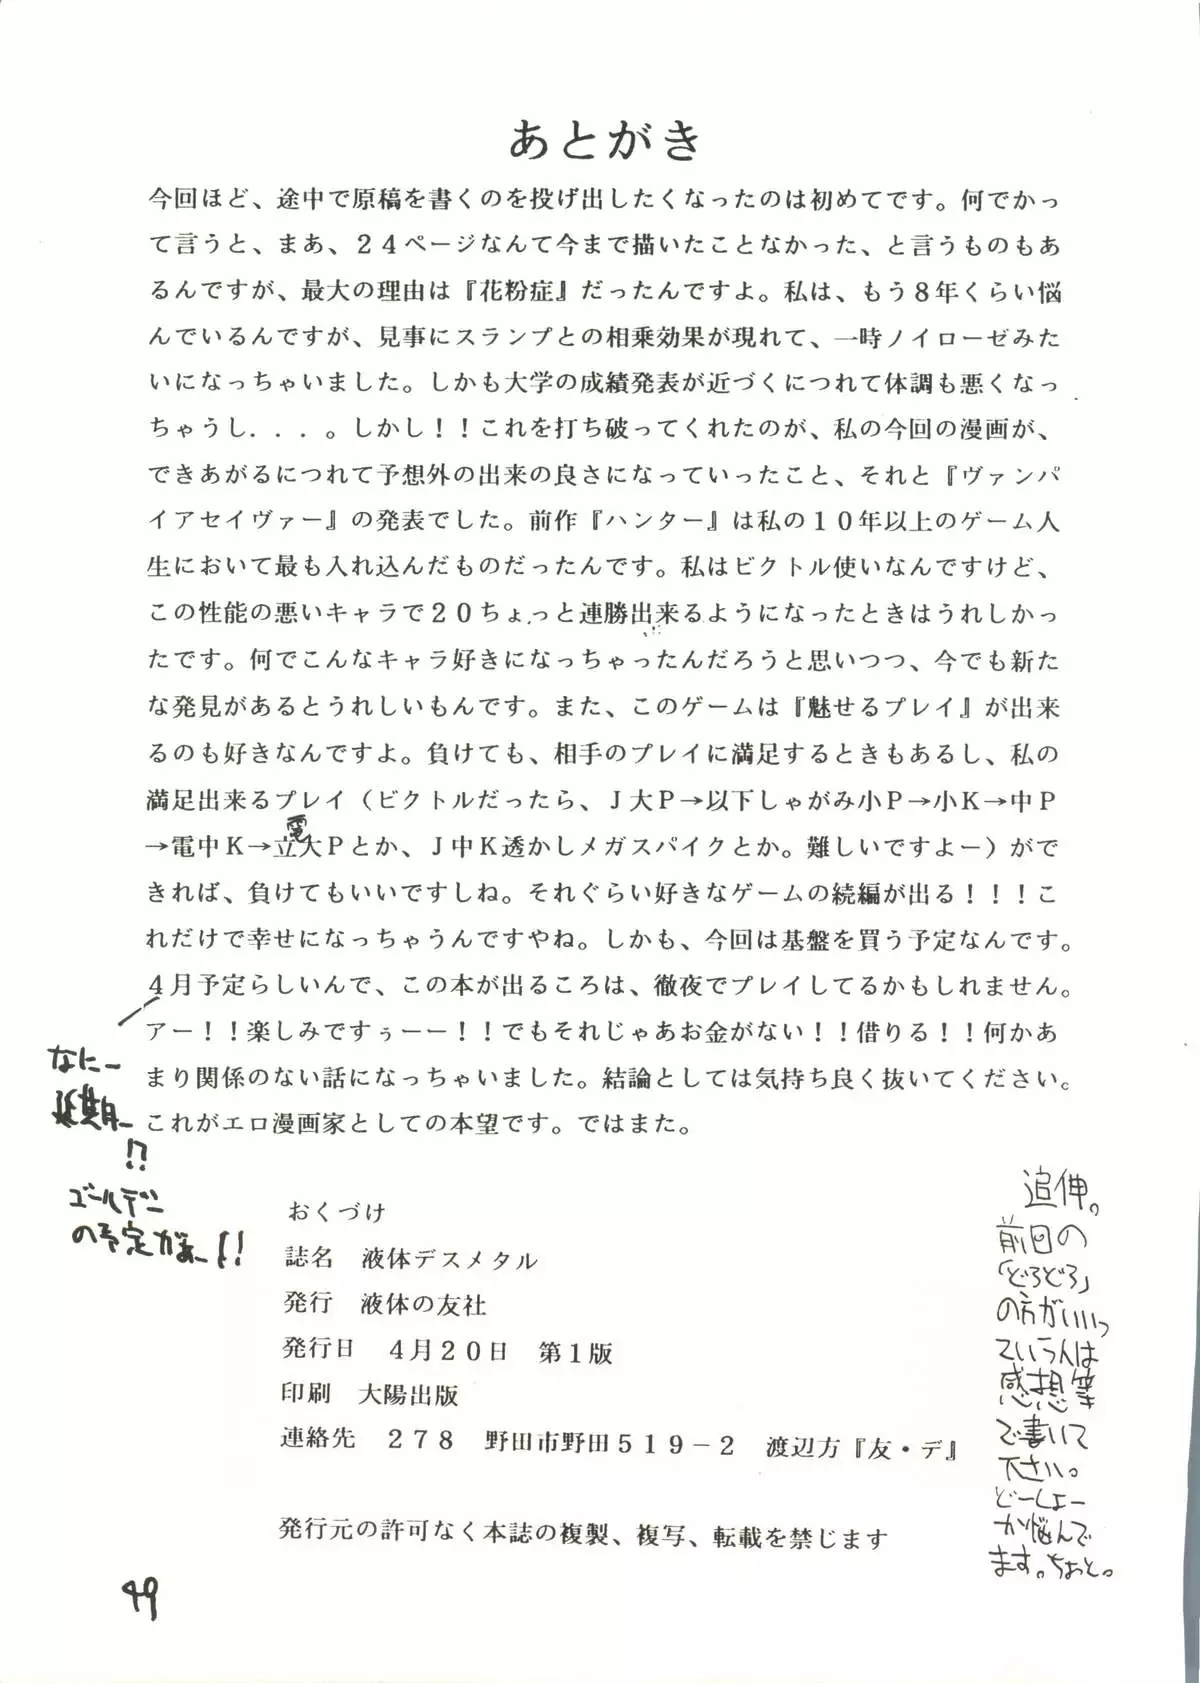 あとがき
今回ほど、途中で原稿を書くのを投げ出したくなったのは初めてです。何でかっ
て言うと、まあ、２４ページなんて今まで描いたことなかった、と言うものもあ
るんですが、最大の理由は『花粉症』だったんですよ。私は、もう８年くらい悩
んでいるんですが、見事にスランプとの相乗効果が現れて、一時ノイローゼみた
いになっちゃいました。しかも大学の成績発表が近づくにつれて体調も悪くなっ
ちゃうし．．．。しかし！！これを打ち破ってくれたのが、私の今回の漫画が、
できあがるにつれて予想外の出来の良さになっていったこと、それと『ヴァンパ
イアセイヴァー』の発表でした。前作『ハンター』は私の１０年以上のゲーム人
生において最も入れ込んだものだったんです。私はビクトル使いなんですけど、
この性能の悪いキャラで２０ちょっと連勝出来るようになったときはうれしかっ
たです。何でこんなキャラ好きになっちゃったんだろうと思いつつ、今でも新た
な発見があるとうれしいもんです。また、このゲームは『魅せるプレイ』が出来
るのも好きなんですよ。負けても、相手のプレイに満足するときもあるし、私の
満足出来るプレイ（ビクトルだったら、Ｊ大Ｐ→以下しゃがみ小Ｐ→小Ｋ→中Ｐ
→電中Ｋ→立電大Ｐとか、Ｊ中Ｋ透かしメガスパイクとか。難しいですよー）がで
きれば、負けてもいいですしね。それぐらい好きなゲームの続編が出る！！！こ
れだけで幸せになっちゃうんですやね。しかも、今回は基盤を買う予定なんです。
４月予定らしいんで、この本が出るころは、徹夜でプレイしてるかもしれません。
アー！！楽しみですぅーー！！でもそれじゃあお金がない！！借りる！！何かあ
まり関係のない話になっちゃいました。結論としては気持ち良く抜いてください。
これがエロ漫画家としての本望です。ではまた。
なにー
延期ー
!?
ゴールデン
の予定がぁー!!
おくづけ
誌名　液体デスメタル
発行　液体の友社
発行日　４月２０日　第１版
印刷　大陽出版
連絡先　２７８　野田市野田５１９－２　渡辺方『友・デ』
発行元の許可なく本誌の複製、複写、転載を禁じます
追伸。
前回の
「どろどろ」
の方がいいっ
ていう人は
感想等
で書いて
下さい。
どーしよー
か悩んで
ます。ちょっと。
49